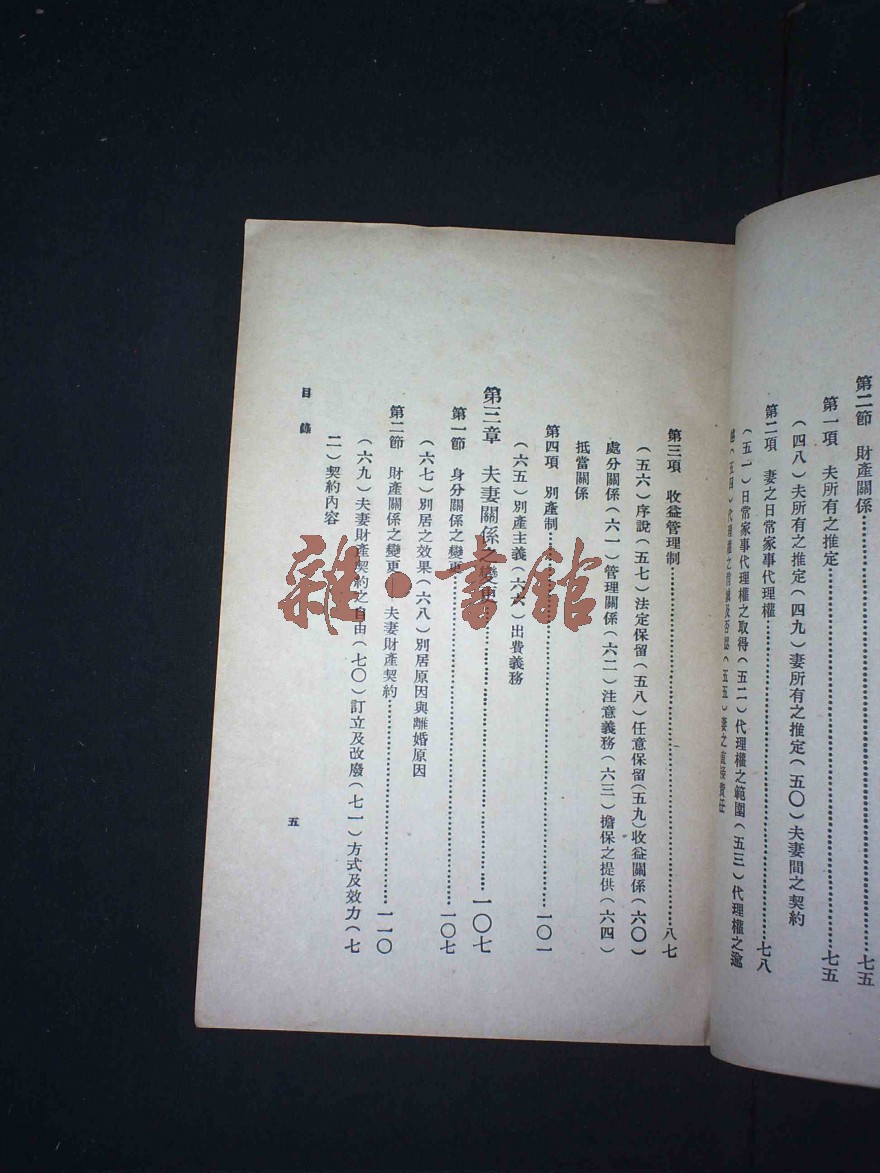 第二節 財產關係……七五
第一項 夫所有之推定……七五
（四八）夫所有之推定（四九）妻所有之推定（五〇）夫妻間之契約
第二項 妻之日常家事代理權……七八
（五一）日常家事代理權之取得（五二）代理權之範圍（五三）代理權之逾
越（五四）代理權之消滅及否認（五五）妻之直接責任
第三項 收益管理制……八七
（五六）序說（五七）法定保留（五八）任意保留（五九）收益關係（六〇）
處分關係（六一）管理關係（六二）注意義務（六三）擔保之提供（六四）
抵當關係
第四項 別產制……一〇一
（六五）別產主義（六六）出費義務
第三章 夫妻關係之變更……一〇七
第一節 身分關係之變更……一〇七
（六七）別居之效果（六八）別居原因與離婚原因
第二節 財產關係之變更——夫妻財產契約……一一〇
（六九）夫妻財產契約之自由（七〇）訂立及改廢（七一）方式及效力（七
二）契約內容
目錄
五
雜·書館